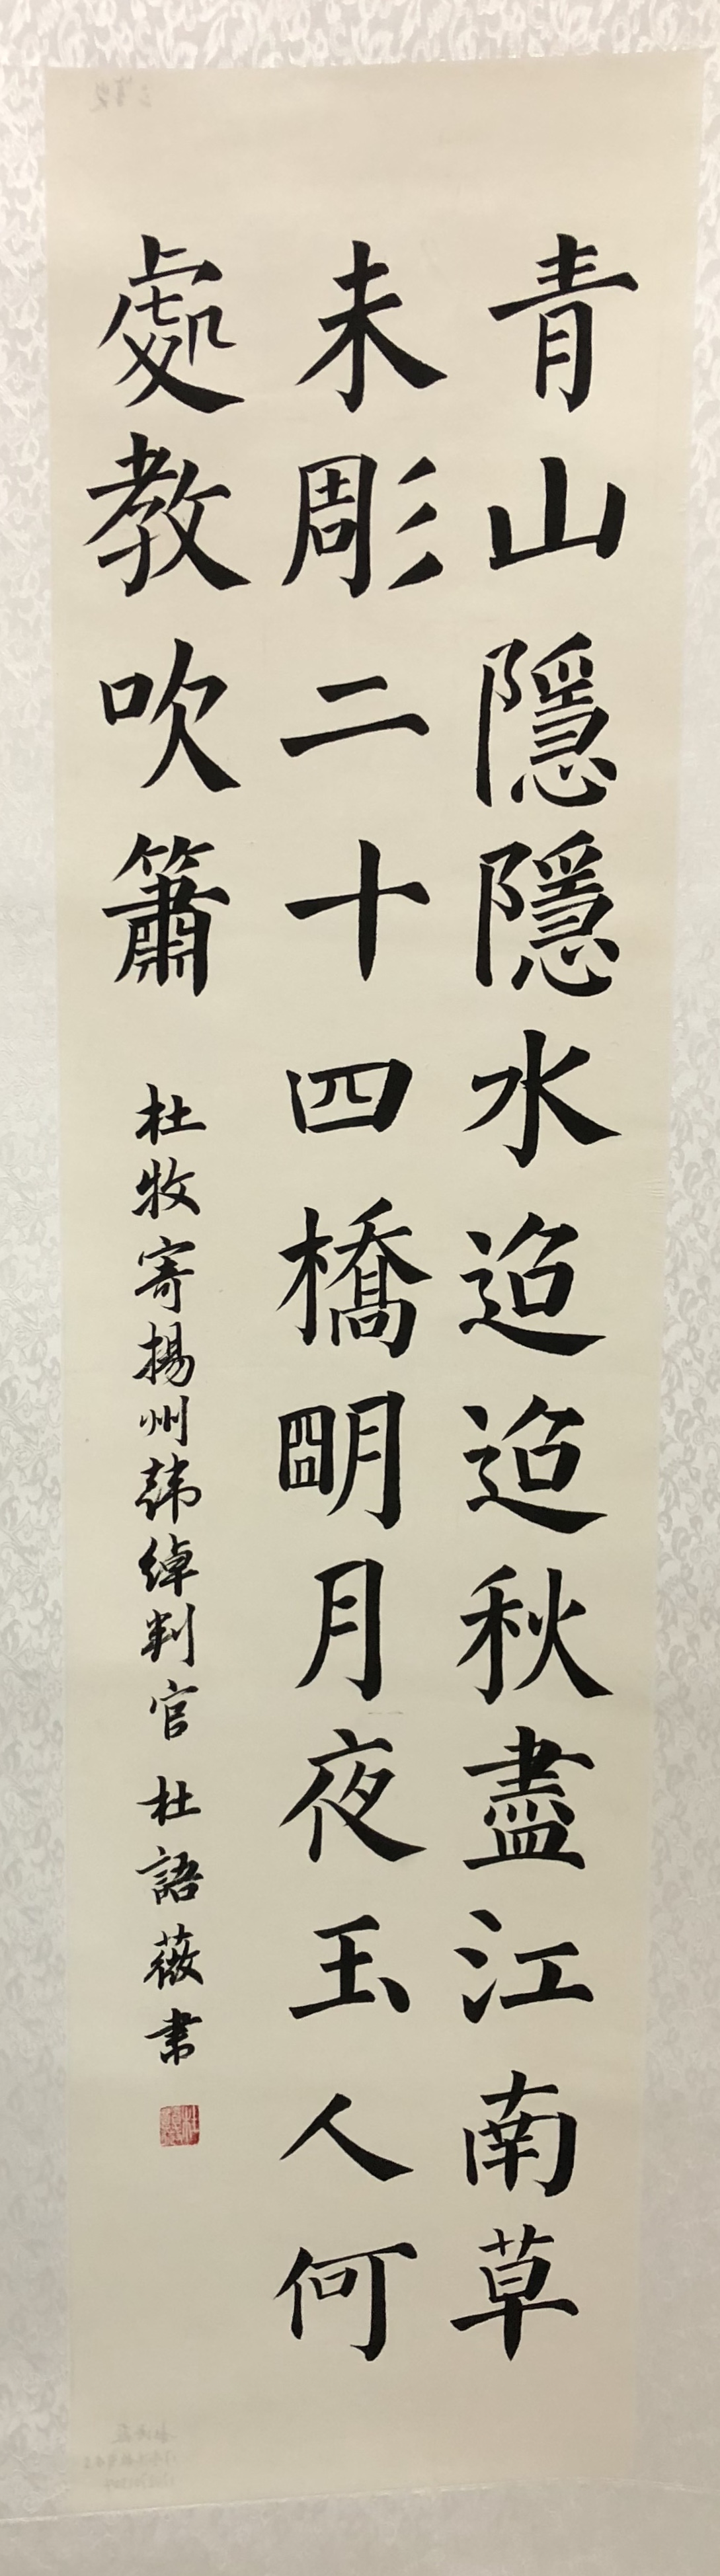 青山隱隱水迢迢秋盡江南草
未彫二十四橋朙月夜玉人何
處教吹簫
杜牧寄揚州韓綽判官 杜語薇書